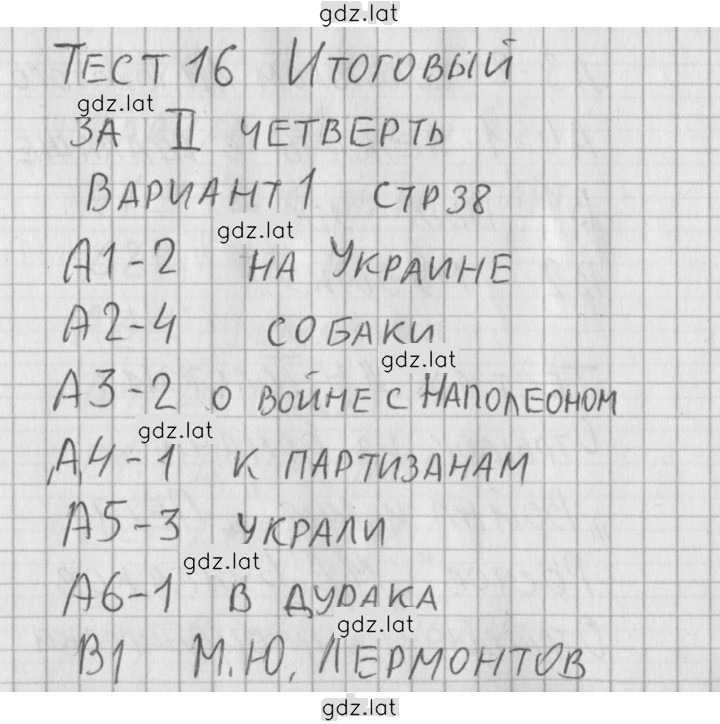 gdz.lat
ТЕСТ 16 ИТОГОВЫЙ
gdz.lat
ЗА II ЧЕТВЕРТЬ
ВАРИАНТ 1 СТР 38
gdz.lat
А1-2 НА УКРАИНЕ
А2-4 СОБАКИ
gdz.lat
А3-2 О ВОЙНЕ С НАПОЛЕОНОМ
gdz.lat
А4-1 К ПАРТИЗАНАМ
А5-3 УКРАЛИ
gdz.lat
А6-1 В ДУРАКА
gdz.lat
В1 М.Ю. ЛЕРМОНТОВ
gdz.lat